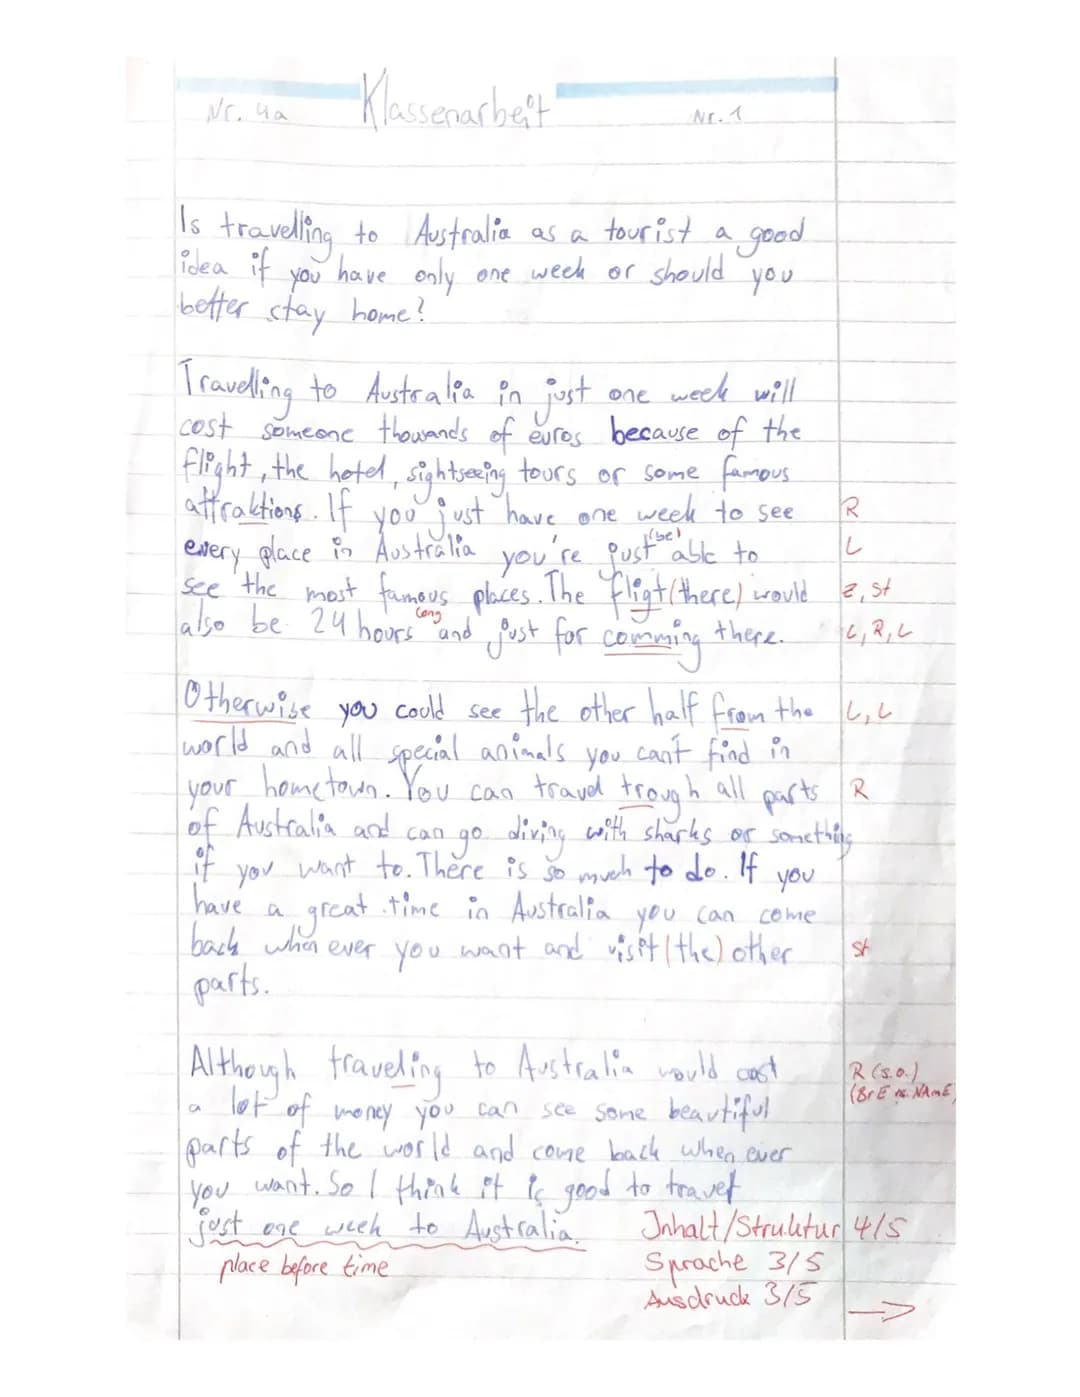 Nr. 4a Klassenarbeit Nr. 1
Is travelling to Australia as a tourist a good
idea if you have only one week or should you
better stay home?
Travelling to Australia in just one week will
cost someone thowands of euros because of the
flight, the hotel, sightseeing tours or some famous
attraktions. If you just have one week to see R
(be)
every place in Australia you're just able to L
see the most famous places. The fligt (there) would Z, St
long
also be 24 hours and just for comming there. L, R, L
Otherwise you could see the other half from the L, L
world and all special animals you can't find in
your hometown. You can travel trough all parts R
of Australia and can go diving with sharks or something
if you want to. There is so much to do. If you
have a great time in Australia you can come
back when ever you want and visit (the) other St
parts.
Although traveling to Australia would cost R (s.o.)
a lot of money you can see some beautiful (BrE vs. NAmE)
parts of the world and come back when ever
you want. So I think it is good to travel
just one week to Australia. Inhalt/Struktur 4/5
place before time Sprache 3/5
Ausdruck 3/5